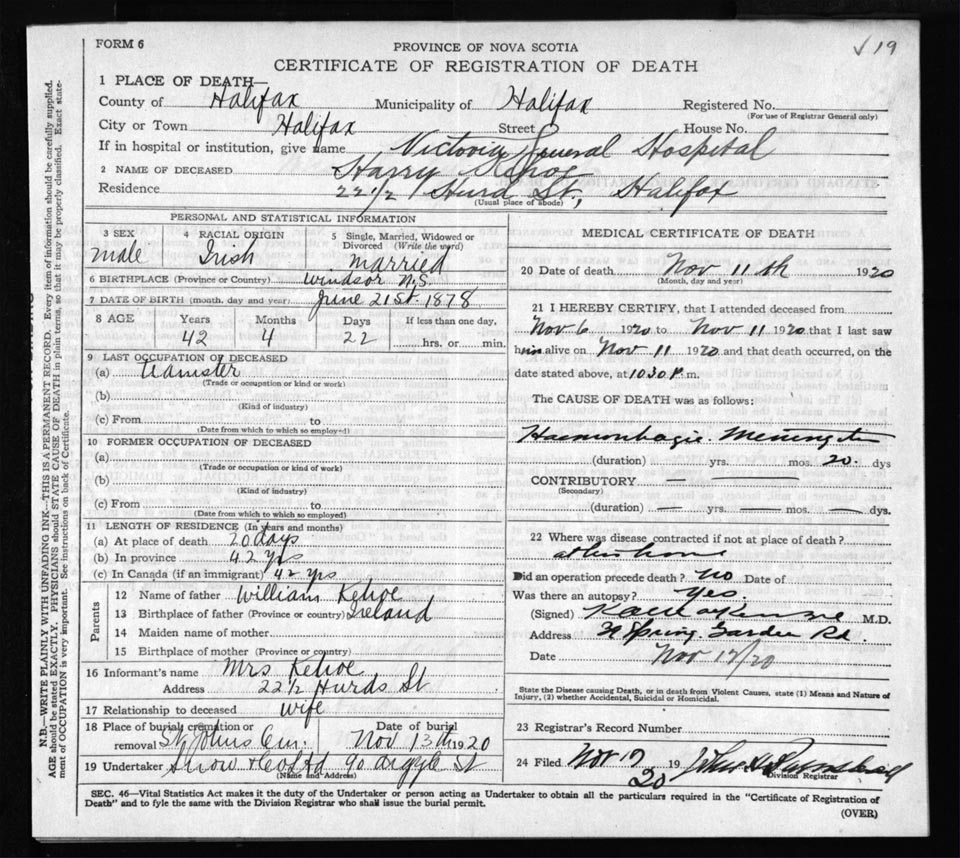 FORM 6
√ 19
PROVINCE OF NOVA SCOTIA
CERTIFICATE OF REGISTRATION OF DEATH
1 PLACE OF DEATH—
County of Halifax Municipality of Halifax Registered No.
(For use of Registrar General only)
City or Town Halifax Street House No.
If in hospital or institution, give name Victoria General Hospital
2 NAME OF DECEASED Harry Kehoe
Residence 22 1/2 Hurd St, Halifax
(Usual place of abode)
PERSONAL AND STATISTICAL INFORMATION
3 SEX 4 RACIAL ORIGIN 5 Single, Married, Widowed or
Divorced (Write the word)
male Irish married
6 BIRTHPLACE (Province or Country) Windsor N.S.
7 DATE OF BIRTH (month, day and year) June 21st 1878
8 AGE Years Months Days If less than one day,
42 4 22 hrs. or min.
9 LAST OCCUPATION OF DECEASED
(a) teamster
(Trade or occupation or kind or work)
(b)
(Kind of industry)
(c) From to
(Date from which to which so employed)
10 FORMER OCCUPATION OF DECEASED
(a)
(Trade or occupation or kind of work)
(b)
(Kind of industry)
(c) From to
(Date from which to which so employed)
11 LENGTH OF RESIDENCE (In years and months)
(a) At place of death 20 days
(b) In province 42 yrs
(c) In Canada (if an immigrant) 42 yrs
Parents
12 Name of father William Kehoe
13 Birthplace of father (Province or country) Ireland
14 Maiden name of mother
15 Birthplace of mother (Province or country)
16 Informant's name Mrs Kehoe
Address 22 1/2 Hurds St
17 Relationship to deceased wife
18 Place of burial cremation or Date of burial
removal St Johns Cem. Nov 13th 1920
19 Undertaker Snow & Co Ltd 90 Argyle St
(Name and Address)
MEDICAL CERTIFICATE OF DEATH
20 Date of death Nov 11th 1920
(Month, day and year)
21 I HEREBY CERTIFY, that I attended deceased from
Nov 6 1920 to Nov 11 1920 that I last saw
him alive on Nov 11 1920 and that death occurred, on the
date stated above, at 10 30 P. m.
The CAUSE OF DEATH was as follows:
Haemorrhagic Meningitis
(duration) yrs. mos. 20 dys
CONTRIBUTORY — —
(Secondary)
(duration) — yrs. — mos. — dys.
22 Where was disease contracted if not at place of death?
at his home
Did an operation precede death? no Date of
Was there an autopsy? Yes.
(Signed) M.D.
Address Spring Garden Rd.
Date Nov 12/20
State the Disease causing Death, or in death from Violent Causes, state (1) Means and Nature of
Injury, (2) whether Accidental, Suicidal or Homicidal.
23 Registrar's Record Number
24 Filed Nov 17 19 20
Division Registrar
SEC. 46—Vital Statistics Act makes it the duty of the Undertaker or person acting as Undertaker to obtain all the particulars required in the "Certificate of Registration of
Death" and to fyle the same with the Division Registrar who shall issue the burial permit.
(OVER)
N.B.—WRITE PLAINLY WITH UNFADING INK—THIS IS A PERMANENT RECORD. Every item of information should be carefully supplied.
AGE should be stated EXACTLY. PHYSICIANS should STATE CAUSE OF DEATH in plain terms, so that it may be properly classified. Exact state-
ment of OCCUPATION is very important. See instructions on back of Certificate.